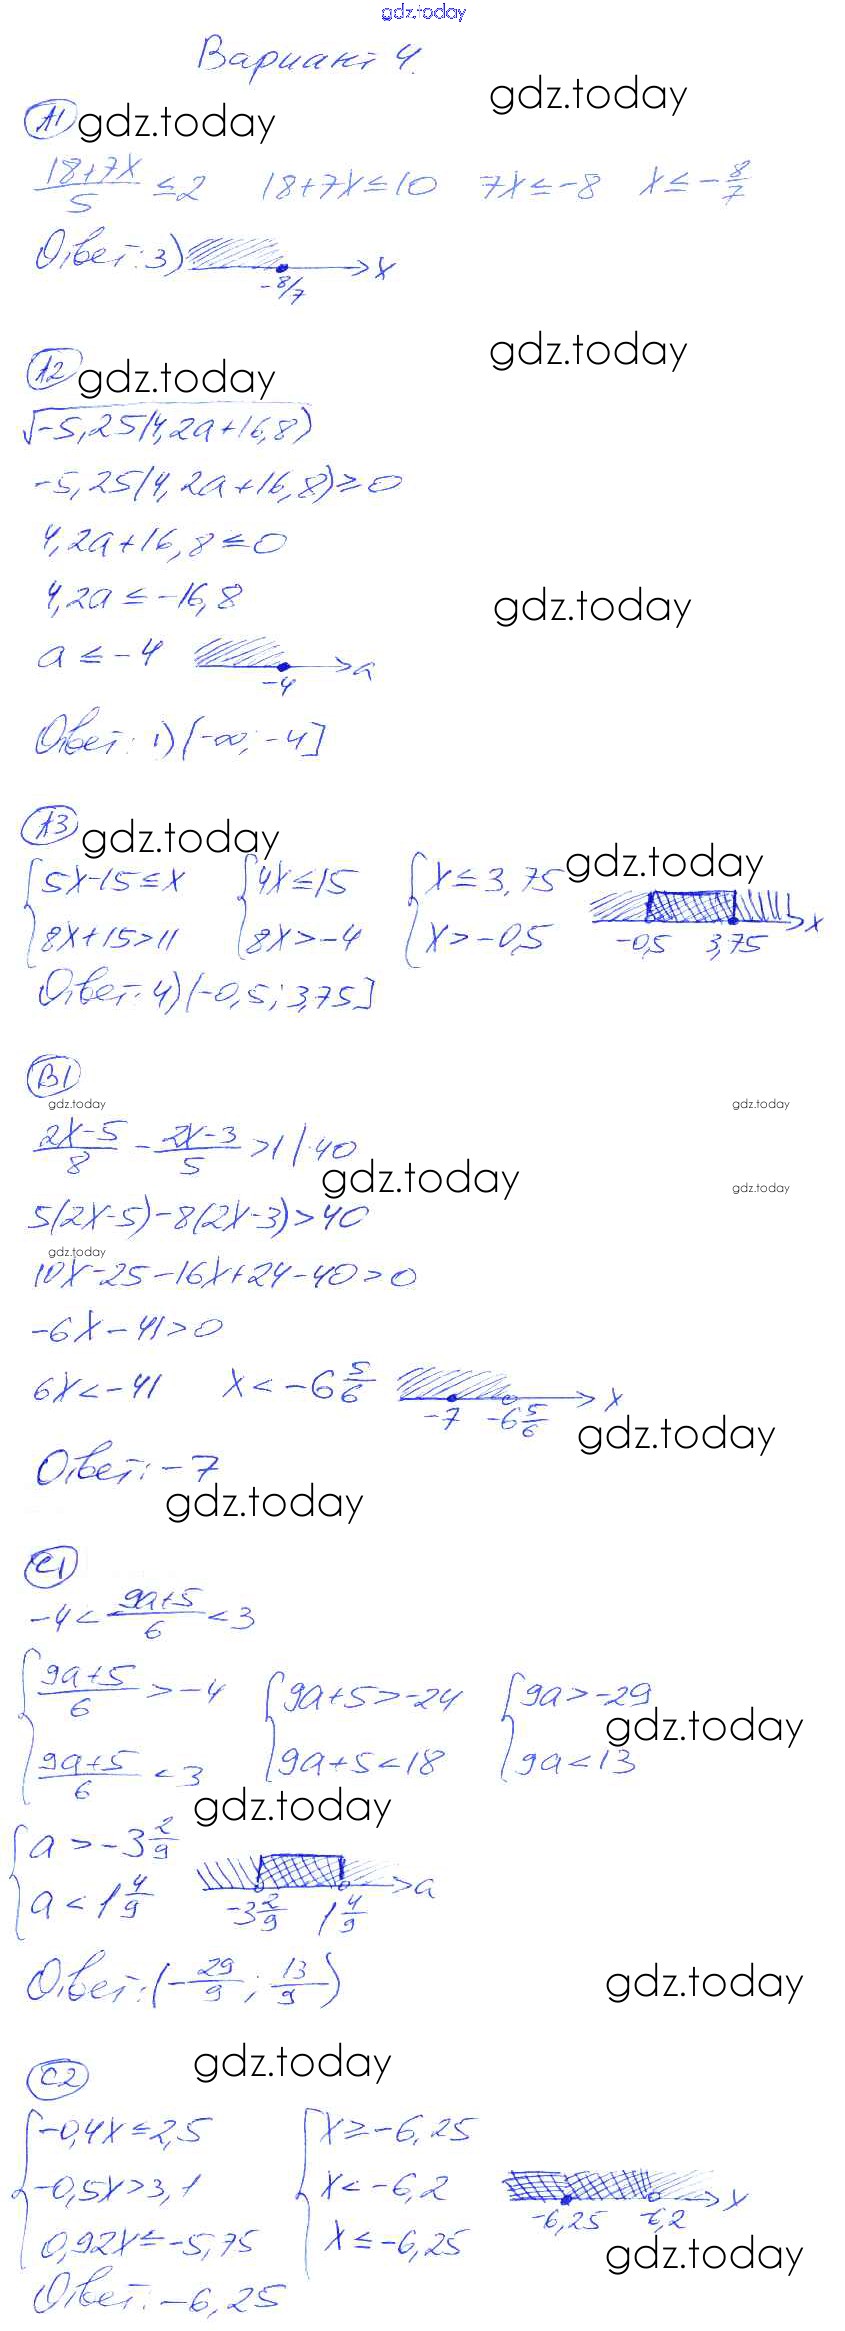 gdz.today
Вариант 4.
А1 gdz.today gdz.today
(18+7x)/5 ≤ 2   18+7x ≤ 10   7x ≤ -8   x ≤ -8/7
Ответ: 3) -8/7 x
gdz.today
А2 gdz.today
√(-5,25(4,2a+16,8))
-5,25(4,2a+16,8) ≥ 0
4,2a+16,8 ≤ 0
4,2a ≤ -16,8 gdz.today
a ≤ -4   -4 a
Ответ: 1) (-∞; -4]
А3 gdz.today
{5x-15 ≤ x   {4x ≤ 15   {x ≤ 3,75 gdz.today
{8x+15 > 11   {8x > -4   {x > -0,5   -0,5 3,75 x
Ответ: 4) (-0,5; 3,75]
В1
gdz.today gdz.today
(2x-5)/8 - (2x-3)/5 > 1 | ·40
gdz.today gdz.today
5(2x-5)-8(2x-3) > 40
gdz.today
10x-25-16x+24-40 > 0
-6x-41 > 0
6x < -41   x < -6 5/6   -7 -6 5/6 x
gdz.today
Ответ: -7
gdz.today
С1
-4 < (9a+5)/6 < 3
{(9a+5)/6 > -4   {9a+5 > -24   {9a > -29
gdz.today
{(9a+5)/6 < 3   {9a+5 < 18   {9a < 13
gdz.today
{a > -3 2/9
{a < 1 4/9   -3 2/9 1 4/9 a
Ответ: (-29/9; 13/9) gdz.today
gdz.today
С2
{-0,4x ≤ 2,5   {x ≥ -6,25
{-0,5x > 3,1   {x < -6,2   -6,25 -6,2 x
{0,92x ≤ -5,75   {x ≤ -6,25 gdz.today
Ответ: -6,25